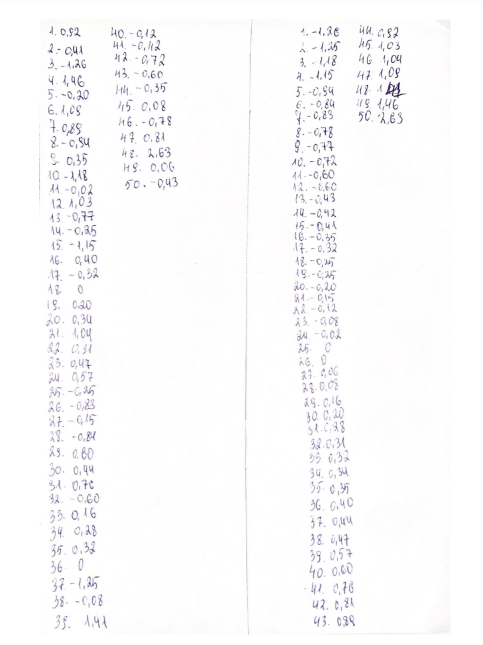 1. 0,92
2. -0,41
3. -1,26
4. 1,46
5. -0,20
6. 1,09
7. 0,89
8. -0,94
9. 0,35
10. -1,18
11. -0,02
12. 1,03
13. -0,77
14. -0,25
15. -1,15
16. 0,40
17. -0,32
18. 0
19. 0,20
20. 0,34
21. 1,04
22. 0,31
23. 0,47
24. 0,57
25. -0,25
26. -0,83
27. -0,15
28. -0,84
29. 0,60
30. 0,44
31. 0,76
32. -0,60
33. 0,16
34. 0,28
35. 0,32
36. 0
37. -1,25
38. -0,08
39. 1,41
40. -0,12
41. -0,42
42. -0,72
43. -0,60
44. -0,35
45. 0,08
46. -0,78
47. 0,81
48. 2,63
49. 0,06
50. -0,43
1. -1,26
2. -1,25
3. -1,18
4. -1,15
5. -0,94
6. -0,84
7. -0,83
8. -0,78
9. -0,77
10. -0,72
11. -0,60
12. -0,60
13. -0,43
14. -0,42
15. -0,41
16. -0,35
17. -0,32
18. -0,25
19. -0,25
20. -0,20
21. -0,15
22. -0,12
23. -0,08
24. -0,02
25. 0
26. 0
27. 0,06
28. 0,08
29. 0,16
30. 0,20
31. 0,28
32. 0,31
33. 0,32
34. 0,34
35. 0,35
36. 0,40
37. 0,44
38. 0,47
39. 0,57
40. 0,60
41. 0,76
42. 0,81
43. 0,89
44. 0,92
45. 1,03
46. 1,04
47. 1,09
48.
49. 1,46
50. 2,63